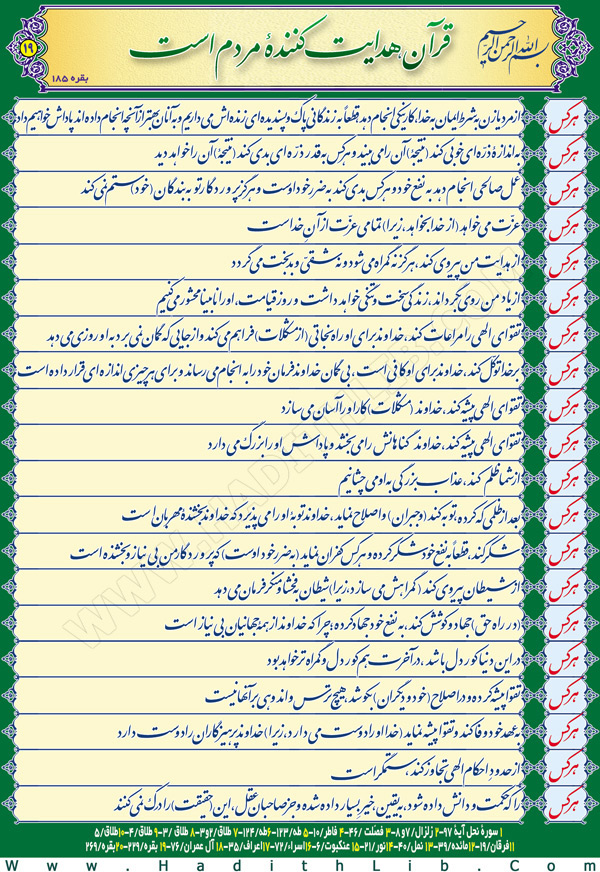 بسم الله الرحمن الرحیم
قرآن هدایت کنندهٔ مردم است
۱۹
بقره ۱۸۵
هرکس از مرد یا زن به شرط ایمان به خدا، کار نیکی انجام دهد، قطعاً به زندگانی پاک و پسندیده ای زنده اش می داریم و به آنان بهتر از آنچه انجام داده اند پاداش خواهیم داد
هرکس به اندازهٔ ذرّه ای خوبی کند (نتیجهٔ) آن را می بیند و هرکس به قدر ذرّه ای بدی کند (نتیجهٔ) آن را خواهد دید
هرکس عمل صالحی انجام دهد به نفع خود و هرکس بدی کند به ضرر خود اوست و هرگز پروردگار تو به بندگان (خود) ستم نمی کند
هرکس عزّت می خواهد (از خدا بخواهد، زیرا) تمامی عزّت از آنِ خداست
هرکس از هدایت من پیروی کند، هرگز نه گمراه می شود و نه شقی و بدبخت می گردد
هرکس از یاد من روی گرداند، زندگی سخت و تنگی خواهد داشت و روز قیامت، او را نابینا محشور می کنیم
هرکس تقوای الهی را مراعات کند، خداوند برای او راه نجاتی (از مشکلات) فراهم می کند و از جایی که گمان نمی برد به او روزی می دهد
هرکس بر خدا توکّل کند، خداوند برای او کافی است، بی گمان خداوند فرمان خود را به انجام می رساند و برای هر چیزی اندازه ای قرار داده است
هرکس تقوای الهی پیشه کند، خداوند (مشکلات) کار او را آسان می سازد
هرکس تقوای الهی پیشه کند، خداوند گناهانش را می بخشد و پاداش او را بزرگ می دارد
هرکس از شما ظلم کند، عذاب بزرگی به او می چشانیم
هرکس بعد از ظلمی که کرده، توبه کند (و جبران) و اصلاح نماید، خداوند توبه او را می پذیرد که خداوند بخشندهٔ مهربان است
هرکس شکر کند، قطعاً به نفع خود شکر کرده و هرکس کفران نماید (به ضرر خود اوست) که پروردگار من بی نیاز و بخشنده است
هرکس از شیطان پیروی کند (گمراهش می سازد، زیرا) شیطان به فحشا و منکر فرمان می دهد
هرکس (در راه حق) جهاد و کوشش کند، به نفع خود جهاد کرده؛ چرا که خداوند از همهٔ جهانیان بی نیاز است
هرکس در این دنیا کور دل باشد، در آخرت هم کور دل و گمراه تر خواهد بود
هرکس تقوا پیشه کرده و در اصلاح (خود و دیگران) بکوشد، هیچ ترس و اندوهی بر آنها نیست
هرکس به عهد خود وفا کند و تقوا پیشه نماید (خدا او را دوست می دارد، زیرا) خداوند پرهیزکاران را دوست دارد
هرکس از حدود و احکام الهی تجاوز کند، ستمگر است
هرکس را که حکمت و دانش داده شود، به یقین، خیر بسیار داده شده و جز صاحبان عقل، این (حقیقت) را درک نمی کنند
۱ سورهٔ نحل آیهٔ ۹۷-۲ زلزال/ ۷و۸-۳ فصّلت /۴۶-۴ فاطر/۱۰-۵ طه/۱۲۳-۶طه/۱۲۴-۷ طلاق/ ۲و۳-۸ طلاق /۳-۹ طلاق/۴-۱۰طلاق/۵
۱۱فرقان/۱۹-۱۲مائده/۳۹-۱۳ نمل/۴۰-۱۴نور/۲۱-۱۵ عنکبوت/۶-۱۶اسراء/۷۲-۱۷اعراف/۳۵-۱۸ آل عمران/۷۶-۱۹ بقره/۲۲۹-۲۰بقره/۲۶۹
Www.HadithLib.Com